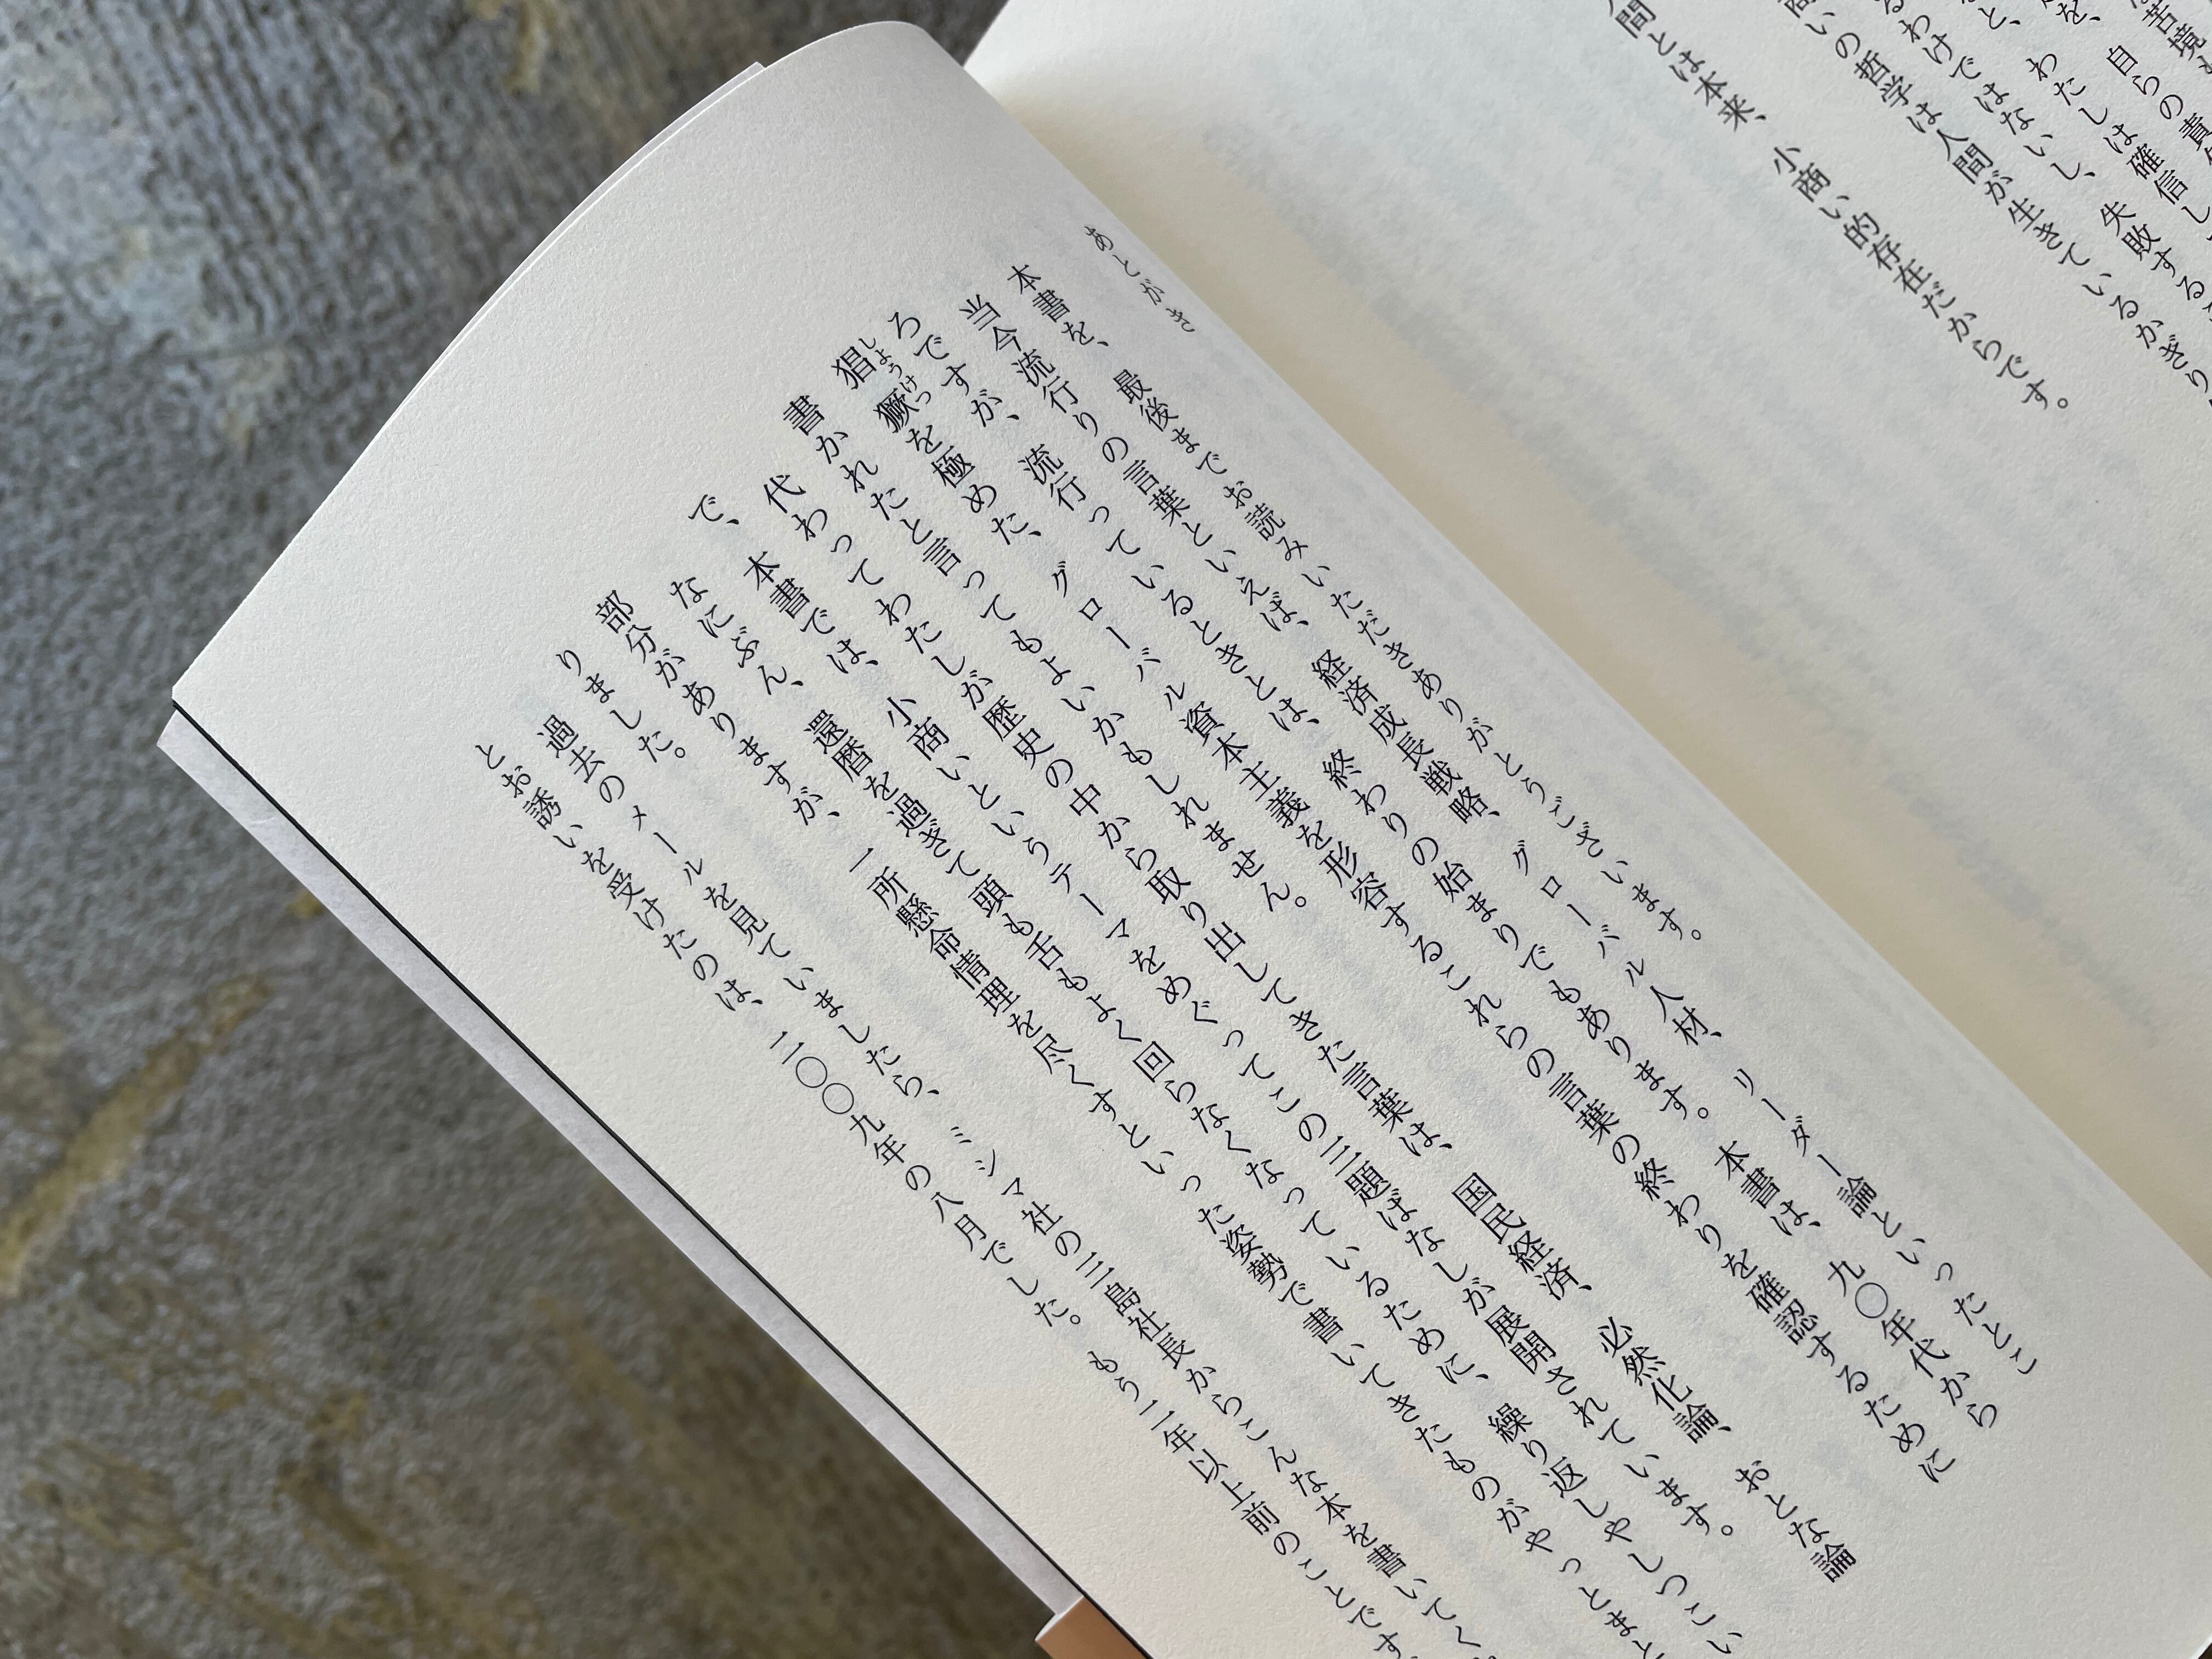 苦境
を、自らの責
と、わたしは確信し
るわけではないし、失敗する
いの哲学は人間が生きているかぎり
人間とは本来、小商い的存在だからです。
あとがき
本書を、最後までお読みいただきありがとうございます。
当今流行りの言葉といえば、経済成長戦略、グローバル人材、リーダー論といったとこ
ろですが、流行っているときとは、終わりの始まりでもあります。本書は、九〇年代から
猖獗を極めた、グローバル資本主義を形容するこれらの言葉の終わりを確認するために
書かれたと言ってもよいかもしれません。
代わってわたしが歴史の中から取り出してきた言葉は、国民経済、必然化論、おとな論
で、本書では、小商いというテーマをめぐってこの三題ばなしが展開されています。
なにぶん、還暦を過ぎて頭も舌もよく回らなくなっているために、繰り返しやしつこい
部分がありますが、一所懸命情理を尽くすといった姿勢で書いてきたものがやっとまと
りました。
過去のメールを見ていましたら、ミシマ社の三島社長からこんな本を書いてく
とお誘いを受けたのは、二〇〇九年の八月でした。もう二年以上前のことです